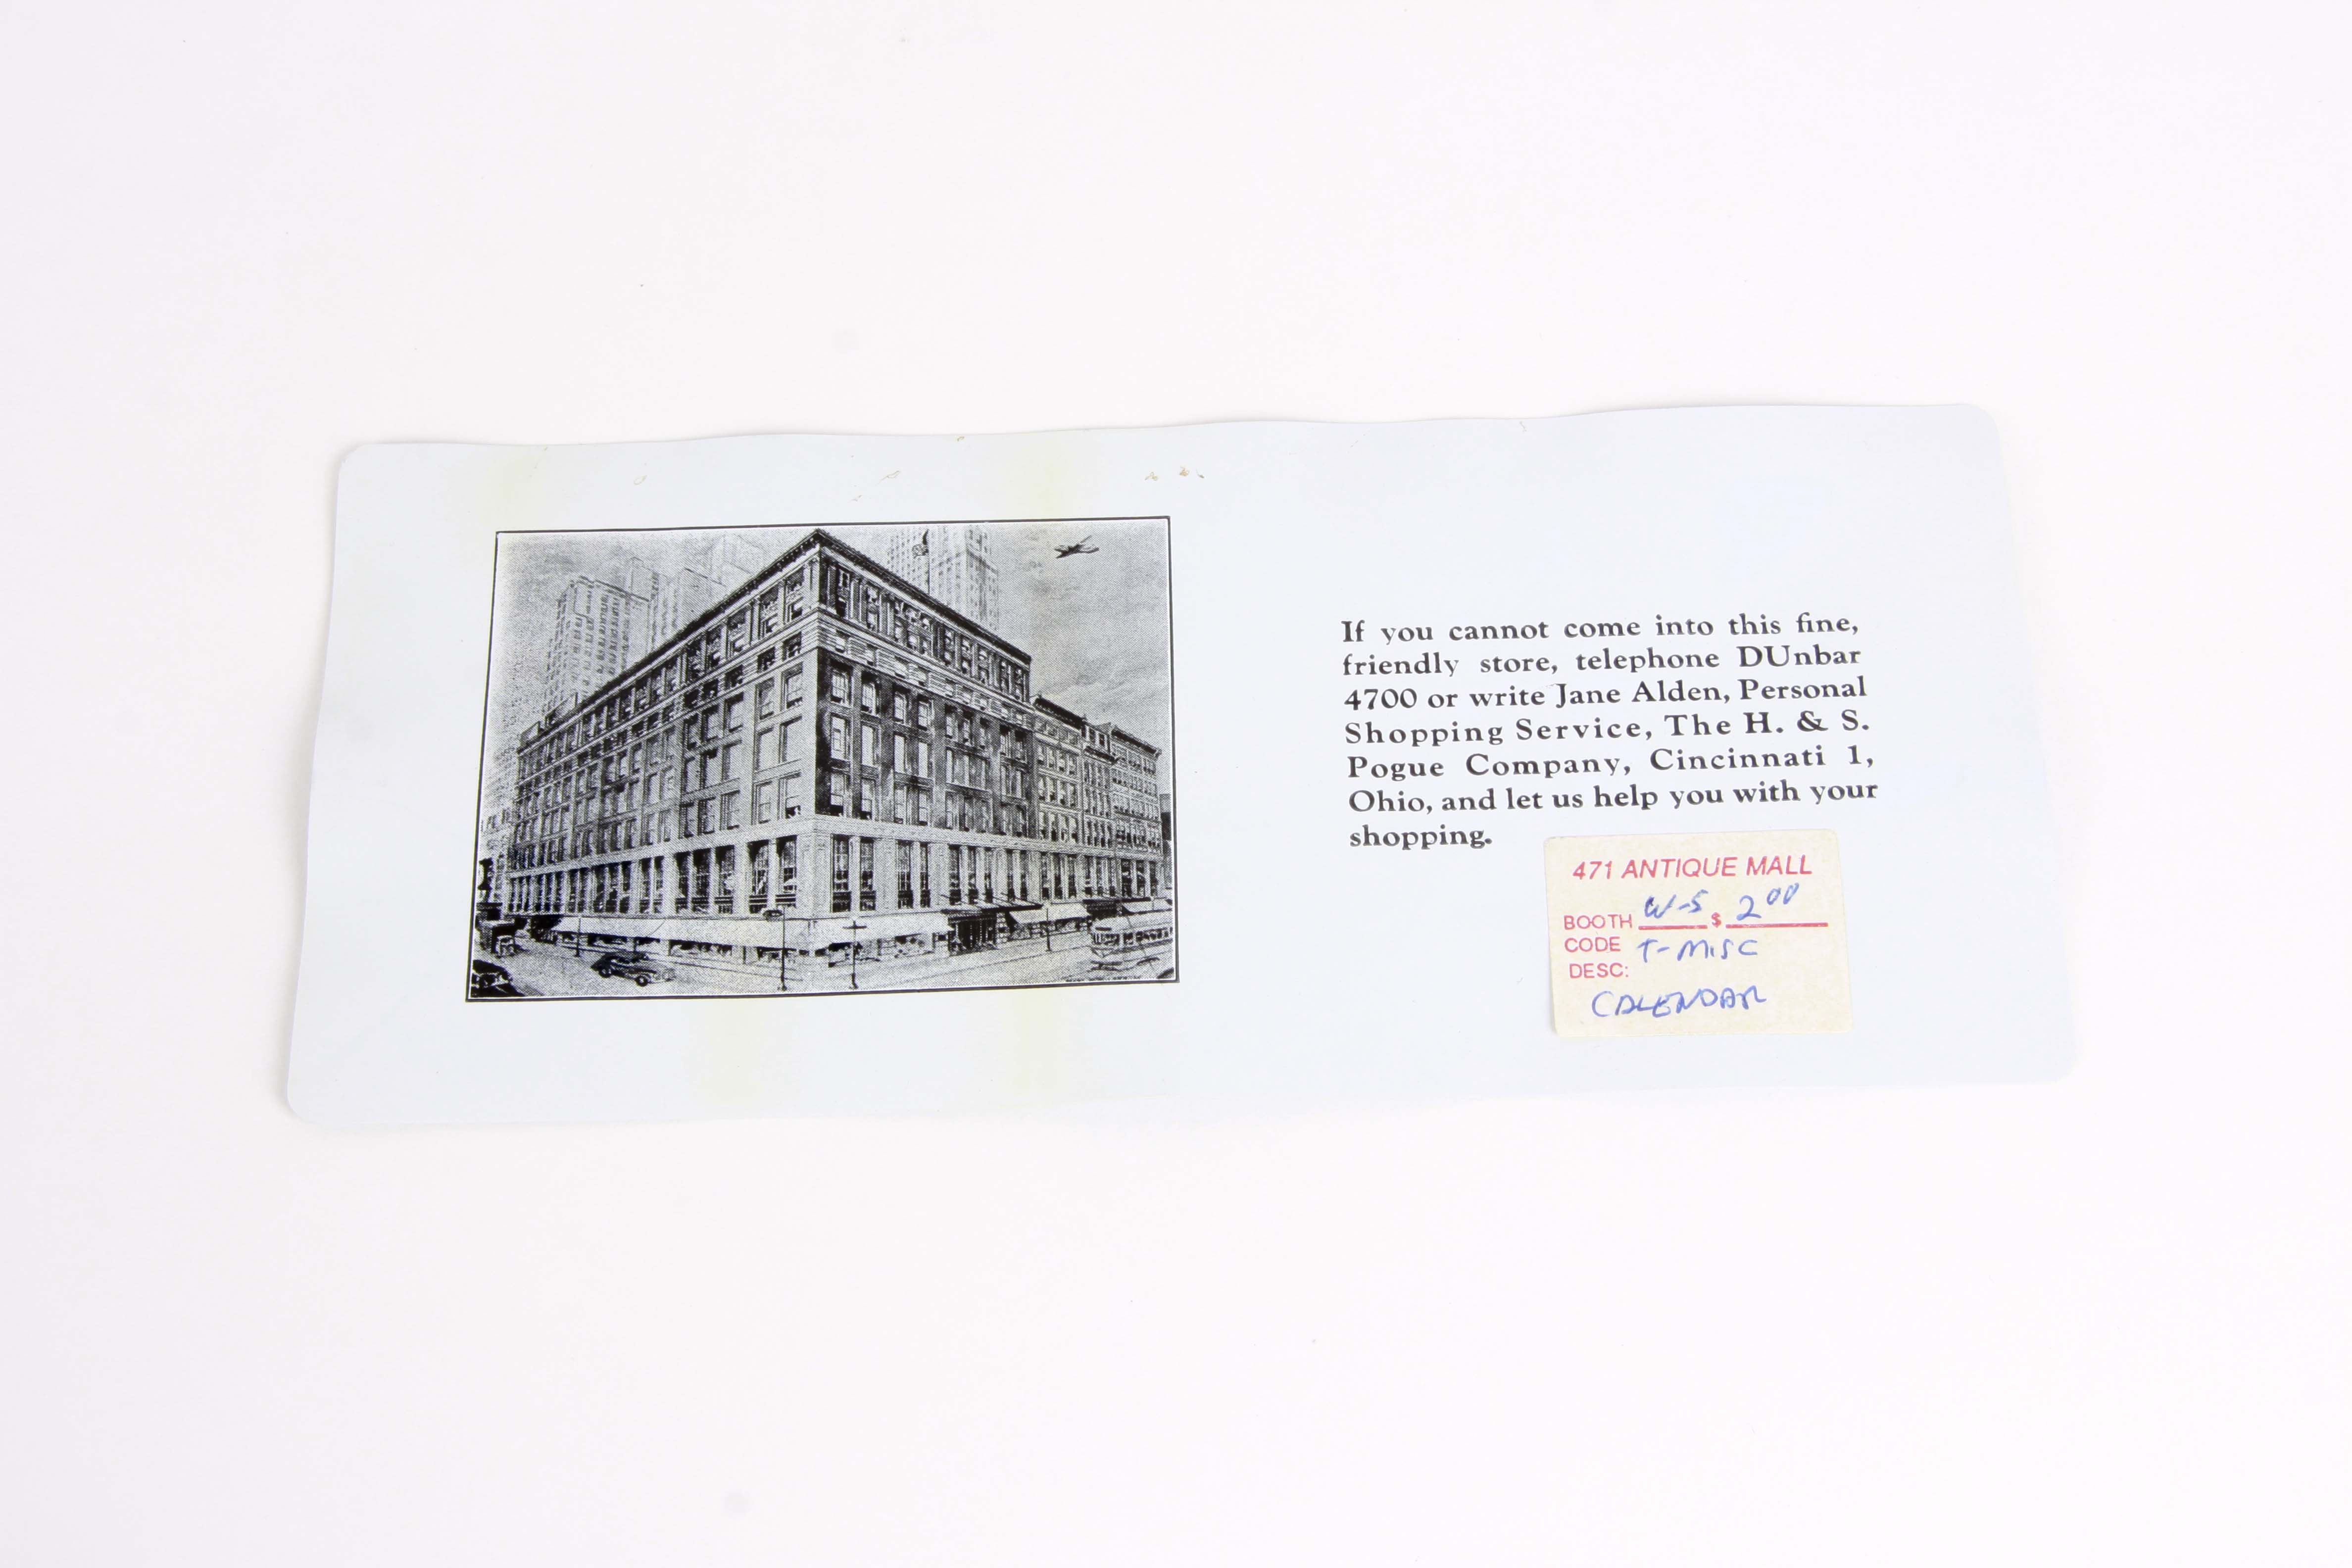 If you cannot come into this fine,
friendly store, telephone DUnbar
4700 or write Jane Alden, Personal
Shopping Service, The H. & S.
Pogue Company, Cincinnati 1,
Ohio, and let us help you with your
shopping.
471 ANTIQUE MALL
BOOTH W-5 $ 2 00
CODE T-MISC
DESC:
CALENDAR